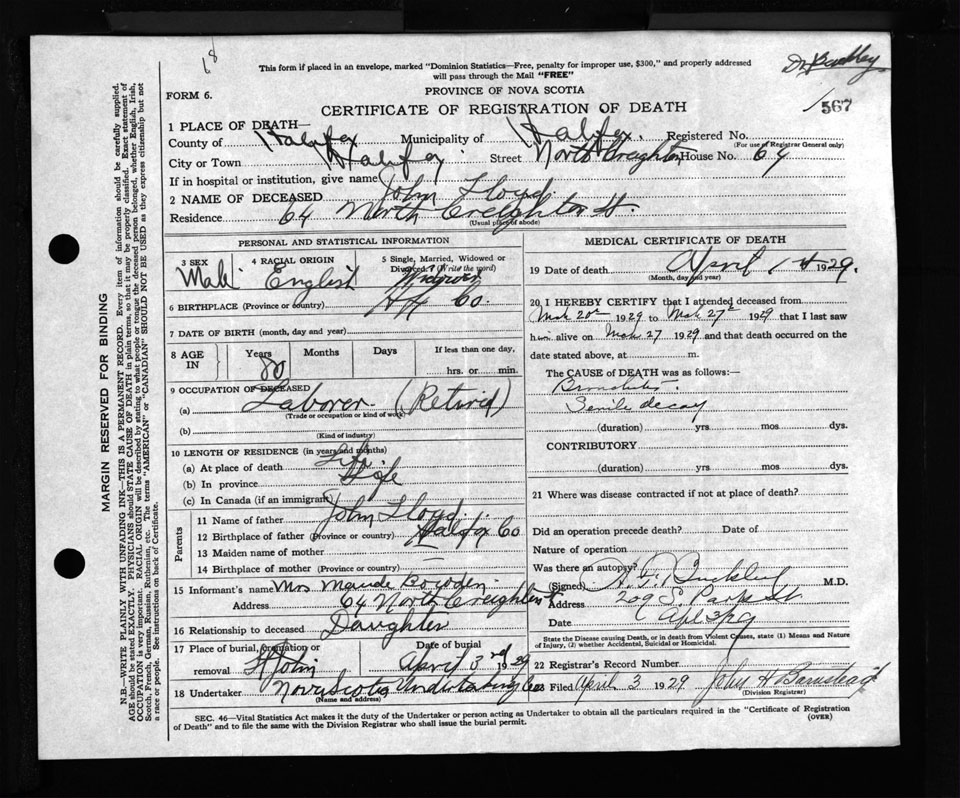 68
Dr Buckley
This form if placed in an envelope, marked "Dominion Statistics—Free, penalty for improper use, $300," and properly addressed
will pass through the Mail "FREE"
FORM 6.
PROVINCE OF NOVA SCOTIA
CERTIFICATE OF REGISTRATION OF DEATH
567
1 PLACE OF DEATH—
County of Halifax Municipality of Halifax. Registered No.
(For use of Registrar General only)
City or Town Halifax Street North Creighton House No. 64
If in hospital or institution, give name
2 NAME OF DECEASED John Lloyd.
Residence 64 North Creighton St.
(Usual place of abode)
PERSONAL AND STATISTICAL INFORMATION
3 SEX Male
4 RACIAL ORIGIN English
5 Single, Married, Widowed or
Divorced (Write the word)
Widower
6 BIRTHPLACE (Province or country) Hfx Co.
7 DATE OF BIRTH (month, day and year)
8 AGE IN Years 80 Months Days If less than one day,
hrs. or min.
9 OCCUPATION OF DECEASED
(a) Laborer (Retired)
(Trade or occupation or kind of work)
(b)
(Kind of industry)
10 LENGTH OF RESIDENCE (in years and months)
(a) At place of death Life.
(b) In province Life
(c) In Canada (if an immigrant)
Parents
11 Name of father John Lloyd.
12 Birthplace of father (Province or country) Halifax Co
13 Maiden name of mother —
14 Birthplace of mother (Province or country) —
15 Informant's name Mrs Maude Bowden
Address 64 North Creighton St
16 Relationship to deceased Daughter
17 Place of burial, cremation or
removal St John Date of burial April 3rd 1929
18 Undertaker Nova Scotia Undertaking Co
(Name and address)
MEDICAL CERTIFICATE OF DEATH
19 Date of death April 1st 1929.
(Month, day and year)
20 I HEREBY CERTIFY that I attended deceased from
Mch 20th 1929 to Mch 27th 1929 that I last saw
him alive on Mch 27 1929 and that death occurred on the
date stated above, at m.
The CAUSE of DEATH was as follows:—
Bronchitis.
Senile decay
(duration) yrs mos dys.
CONTRIBUTORY
(duration) yrs. mos. dys.
21 Where was disease contracted if not at place of death?
Did an operation precede death? Date of
Nature of operation
Was there an autopsy?
(Signed) Buckley M.D.
Address 209 S. Park St.
Date Apl 3/29
State the Disease causing Death, or in death from Violent Causes, state (1) Means and Nature
of Injury, (2) whether Accidental, Suicidal or Homicidal.
22 Registrar's Record Number
Filed April 3 1929 John H Barnstead
(Division Registrar)
SEC. 46—Vital Statistics Act makes it the duty of the Undertaker or person acting as Undertaker to obtain all the particulars required in the "Certificate of Registration
of Death" and to file the same with the Division Registrar who shall issue the burial permit.
(OVER)
MARGIN RESERVED FOR BINDING
N.B.—WRITE PLAINLY WITH UNFADING INK—THIS IS A PERMANENT RECORD. Every item of information should be carefully supplied.
AGE should be stated EXACTLY. PHYSICIANS should STATE CAUSE OF DEATH in plain terms, so that it may be properly classified. Exact statement of
OCCUPATION is very important. RACIAL ORIGIN will be described by stating to what people or tongue the deceased person belonged, whether English, Irish,
Scotch, French, German, Russian, Ruthenian, etc. The terms "AMERICAN" or "CANADIAN" SHOULD NOT BE USED as they express citizenship but not
a race or people. See instructions on back of Certificate.